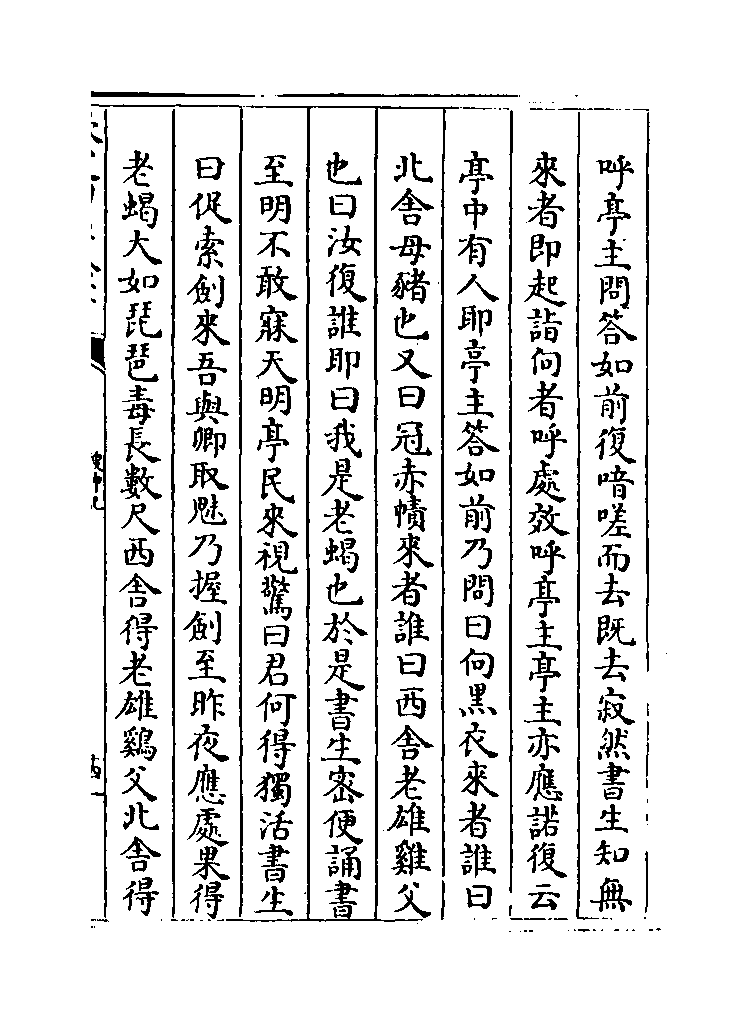 呼亭主問答如前復喑嗟而去既去寂然書生知無
來者即起詣向者呼處效呼亭主亭主亦應諾復云
亭中有人耶亭主答如前乃問曰向黑衣來者誰曰
北舍母豬也又曰冠赤幘來者誰曰西舍老雄雞父
也曰汝復誰耶曰我是老蝎也於是書生密便誦書
至明不敢寐天明亭民來視驚曰君何得獨活書生
曰促索劍來吾與卿取魅乃握劍至昨夜應處果得
老蝎大如琵琶毒長數尺西舍得老雄鷄父北舍得